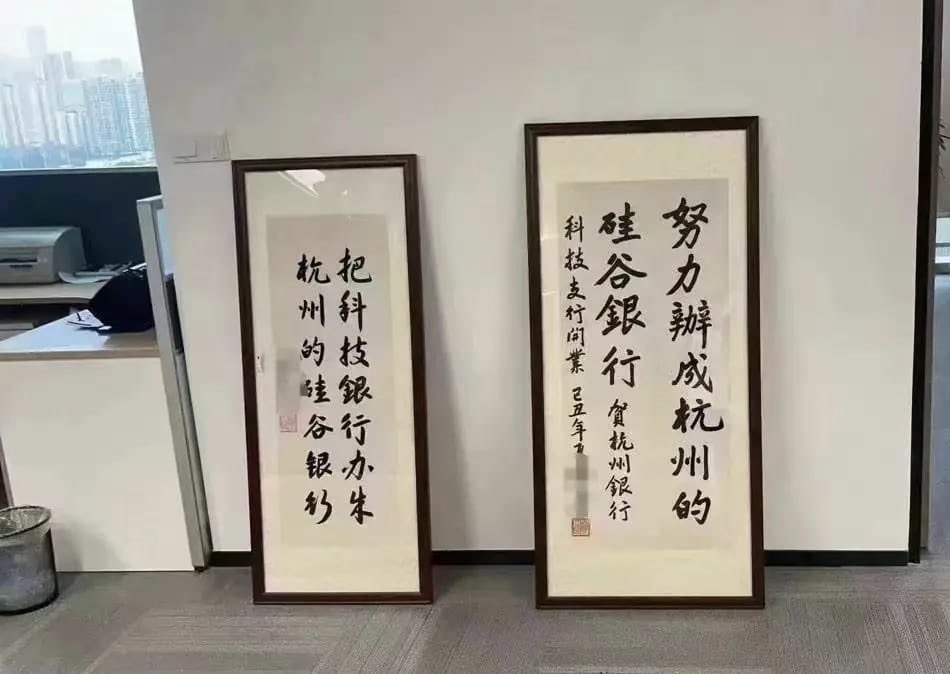 努力辦成杭州的
硅谷銀行 賀杭州銀行
科技支行開業 己丑年
把科技銀行办成
杭州的硅谷银行